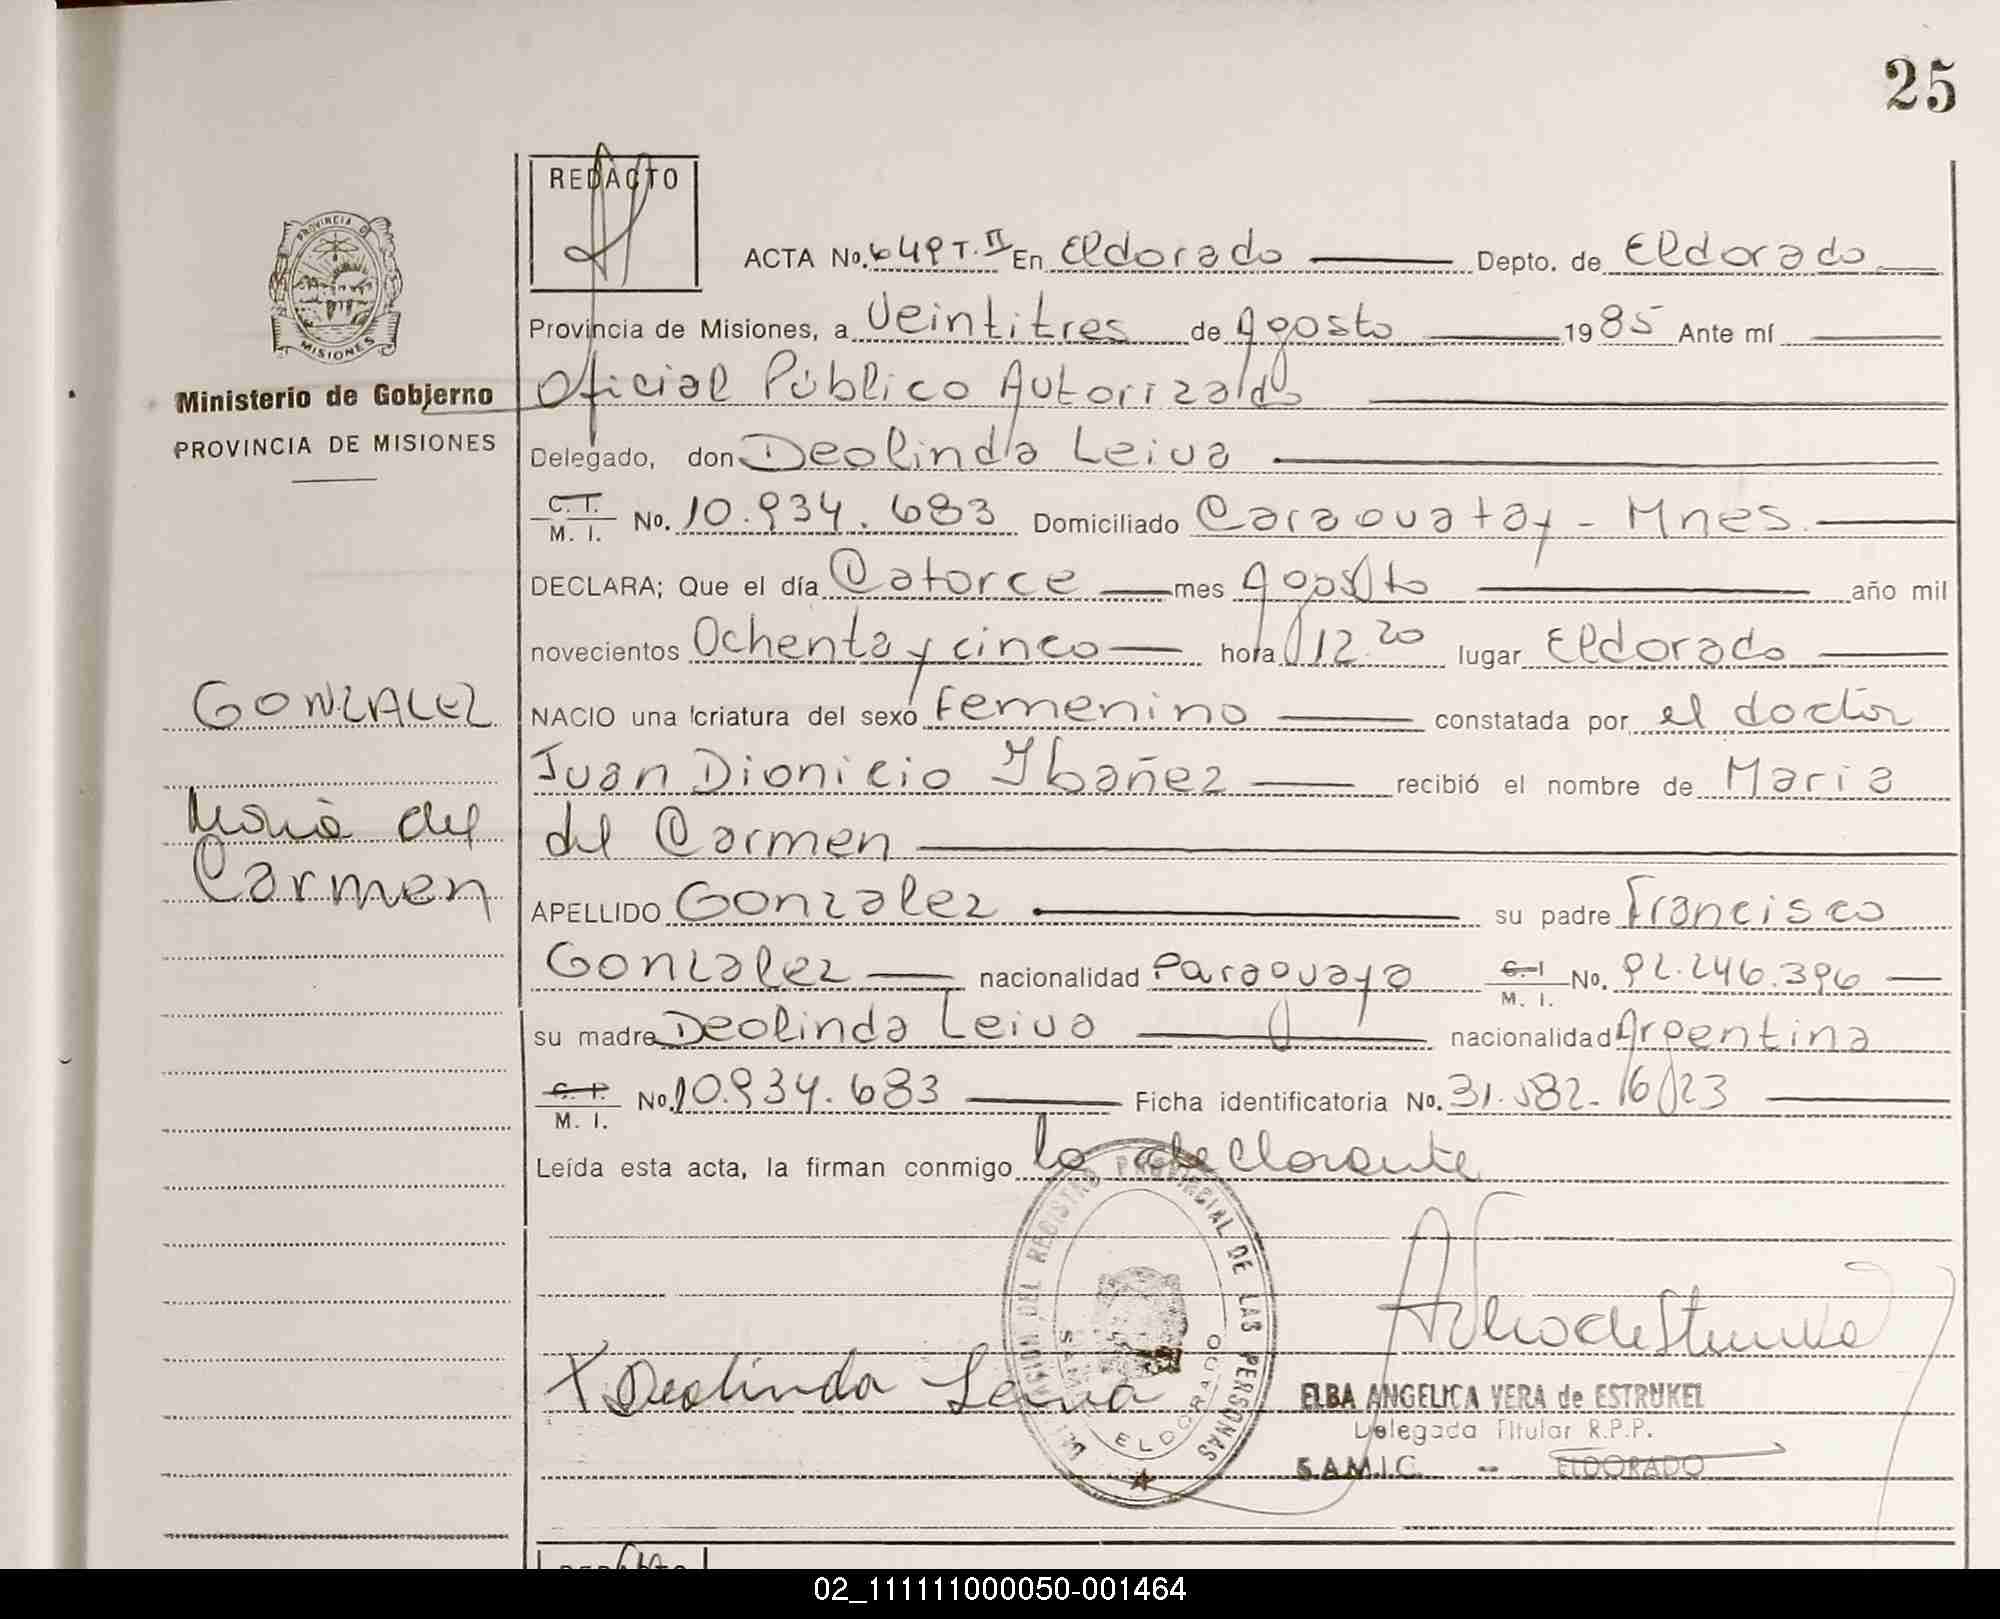 25
REDACTO
ACTA No. 649 T. II En Eldorado Depto. de Eldorado
Provincia de Misiones, a Veintitres de Agosto 1985 Ante mí
Oficial Público Autorizado
Delegado, don Deolinda Leiva
C. T. M. I. No. 10.934.683 Domiciliado Caraguatay - Mnes.
DECLARA; Que el día Catorce mes Agosto año mil
novecientos Ochenta y cinco hora 12.20 lugar Eldorado
NACIO una criatura del sexo Femenino constatada por el doctor
Juan Dionicio Ybañez recibió el nombre de Maria
del Carmen
APELLIDO Gonzalez su padre Francisco
Gonzalez nacionalidad Paraguaya C. I. M. I. No. 92.246.396
su madre Deolinda Leiva nacionalidad Argentina
M. I. No. 10.934.683 Ficha identificatoria No. 31.582.
Leída esta acta, la firman conmigo la declarante
X Deolinda Leiva
ELBA ANGELICA VERA de ESTRUKEL
Delegada Titular R.P.P.
S.A.M.I.C. -- ELDORADO
DEL REGISTRO PROVINCIAL DE LAS PERSONAS
ELDORADO
PROVINCIA D
MISIONES
Ministerio de Gobierno
PROVINCIA DE MISIONES
GONZALEZ
Maria del
Carmen
02_111111000050-001464